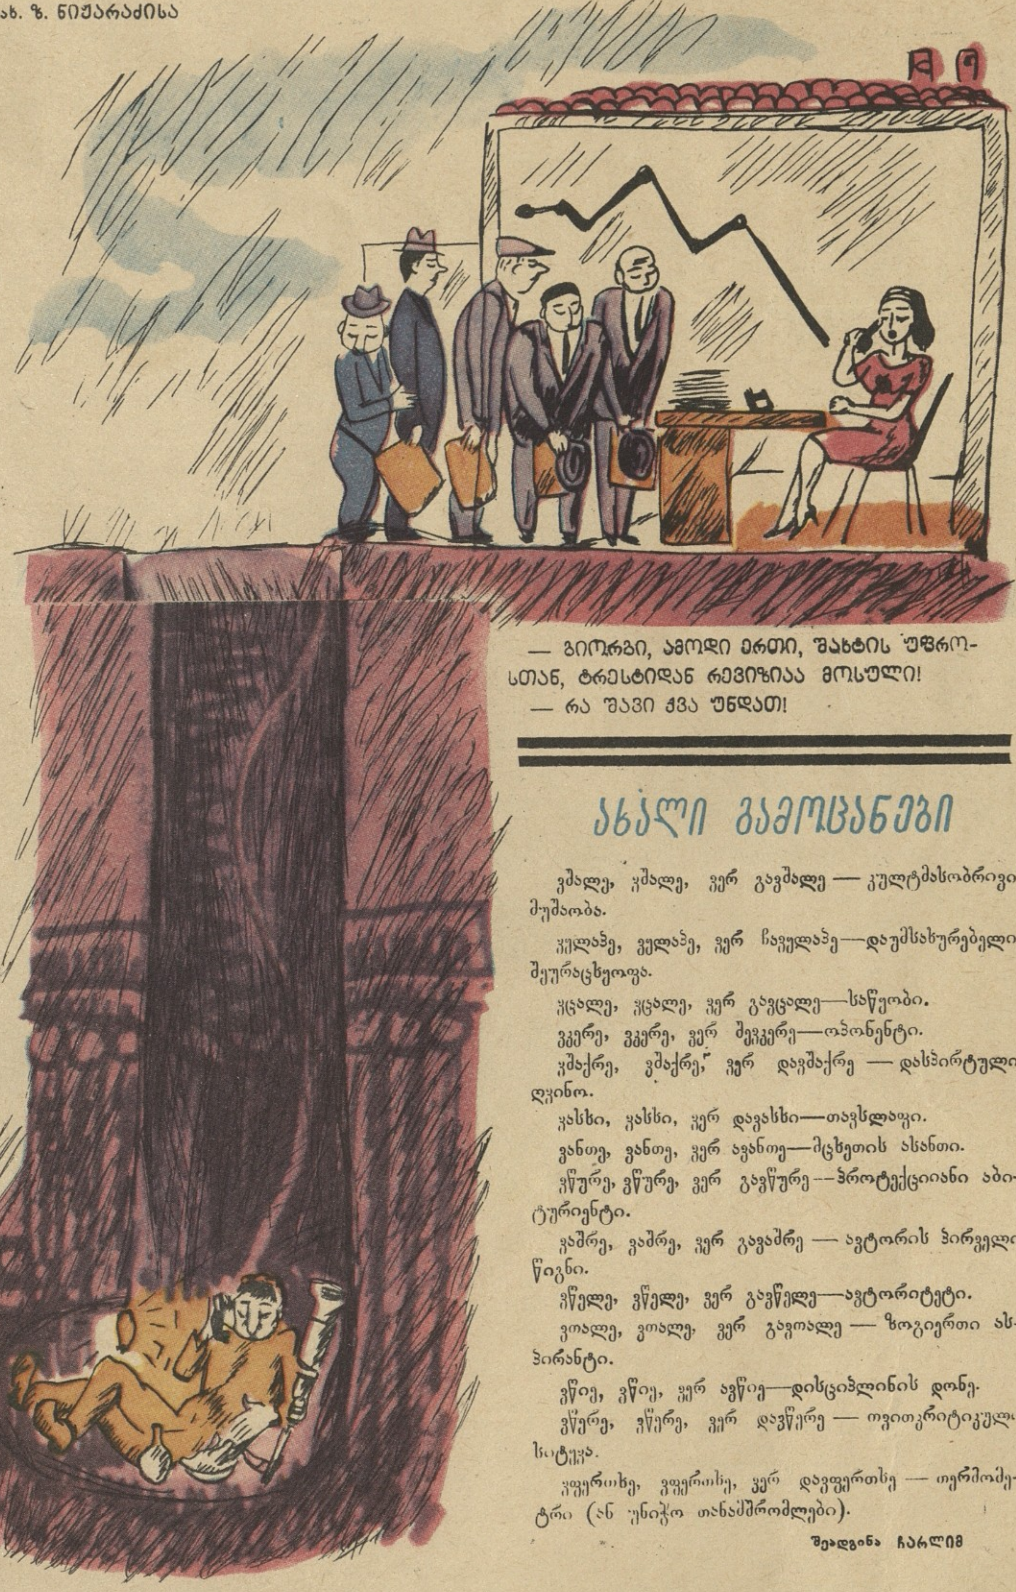 ნახ. ზ. ნიჟარაძისა
— გიორგი, ამოდი ერთი, შახტის უფრო-
სთან, ტრესტიდან რევიზიაა მოსული!
— რა შავი ქვა უნდათ!
ახალი გამოცანები
ვშალე, ვშალე, ვერ გავშალე — კულტმასობრივი
მუშაობა.
ვყლაპე, ვყლაპე, ვერ ჩავყლაპე—დაუმსახურებელი
შეურაცხყოფა.
ვცალე, ვცალე, ვერ გავცალე—საწყობი.
ვკერე, ვკერე, ვერ შევკერე—ოპონენტი.
ვშაქრე, ვშაქრე, ვერ დავშაქრე — დასპირტული
ღვინო.
ვასხი, ვასხი, ვერ დავასხი—თავსლაფი.
ვანთე, ვანთე, ვერ ავანთე—მცხეთის ასანთი.
ვწურე, ვწურე, ვერ გავწურე—პროტექციიანი აბი-
ტურიენტი.
ვაშრე, ვაშრე, ვერ გავაშრე — ავტორის პირველი
წიგნი.
ვწელე, ვწელე, ვერ გავწელე—ავტორიტეტი.
ვთალე, ვთალე, ვერ გავთალე — ზოგიერთი ას-
პირანტი.
ვწიე, ვწიე, ვერ ავწიე—დისციპლინის დონე.
ვწერე, ვწერე, ვერ დავწერე — თვითკრიტიკული
სიტყვა.
ვფერთხე, ვფერთხე, ვერ დავფერთხე — თერმომე-
ტრი (ან უნიჭო თანამშრომლები).
შეადგინა ჩარლიმ